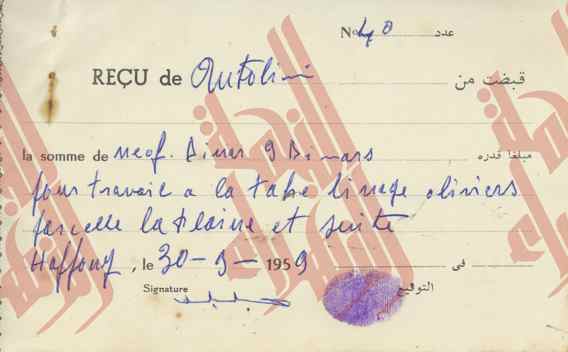 No 40 عدد
REÇU de Antolini قبضت من
la somme de neof. Dinar 9 Dinars مبلغا قدره
pour travail a la
parcelle la Plaine et suite
Haffouz, le 30-9-1959 في
Signature التوقيع